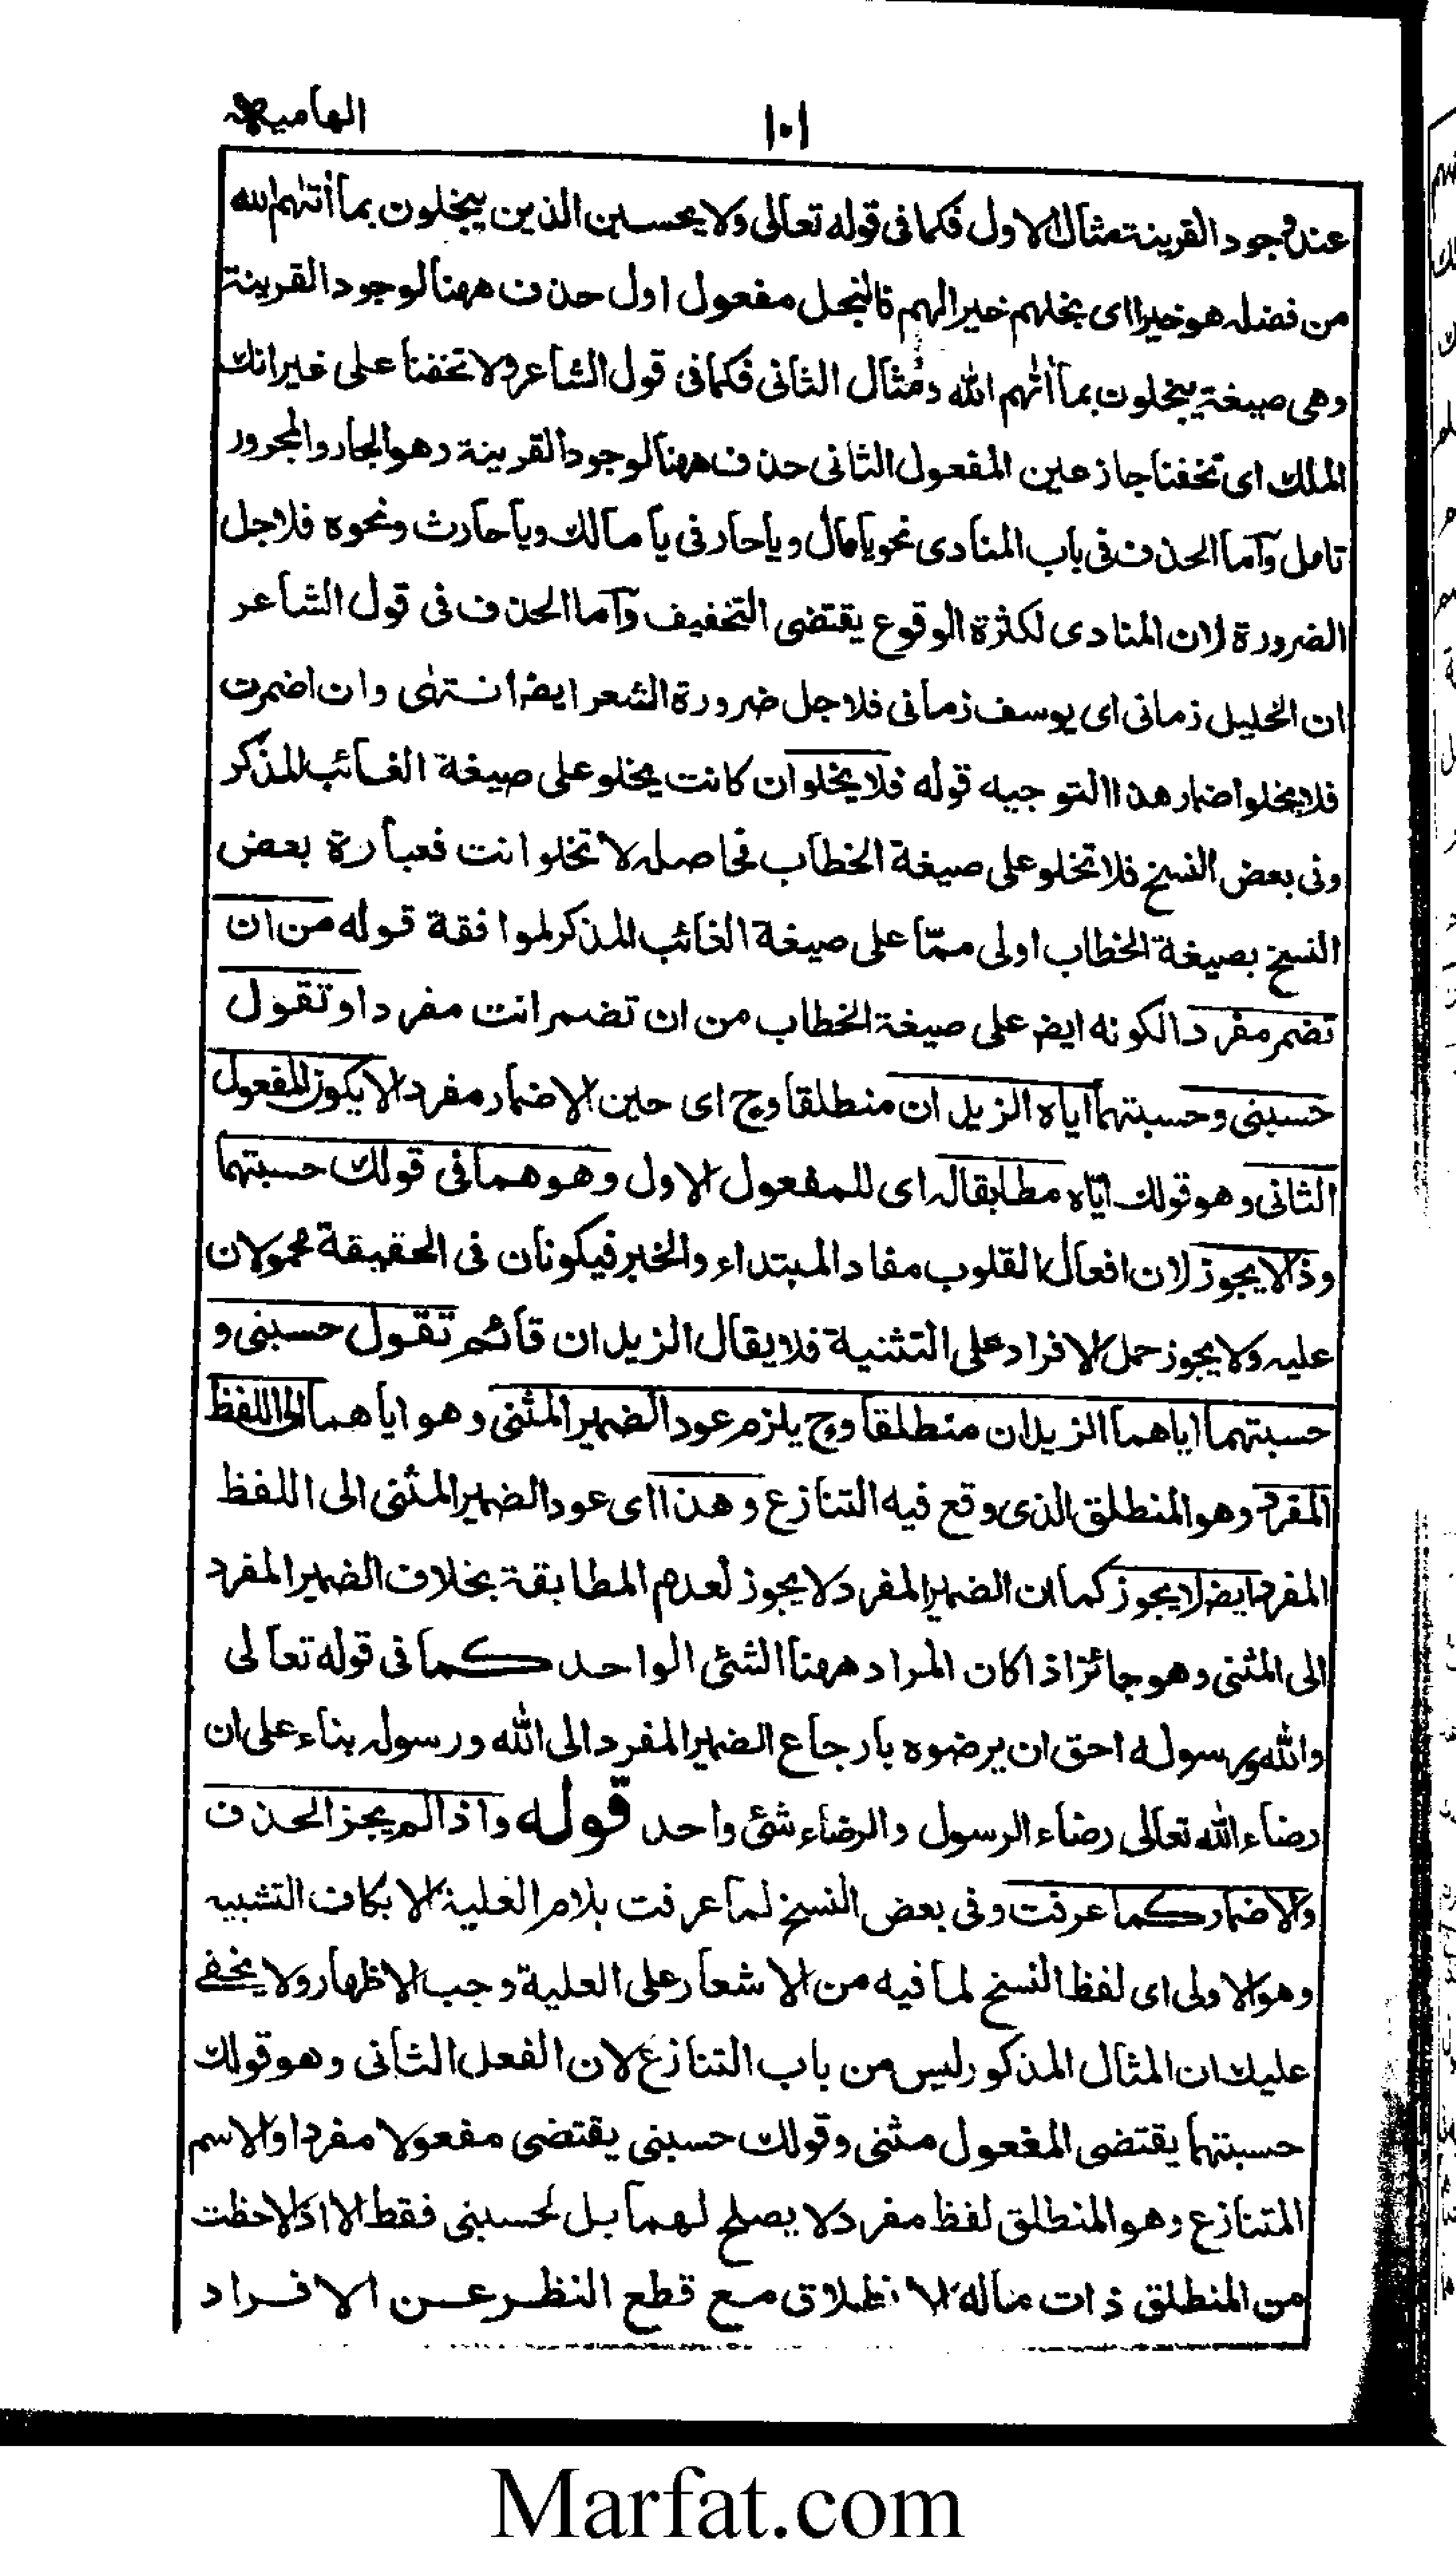 الهامیه
١٠١
عند وجود القرينة مثال الاول فكما فى قوله تعالى ولا يحسبن الذين يبخلون بما أتٰهم الله
من فضله هو خيرا اى بخلهم خيرا لهم فالبخل مفعول اول حذف ههنا لوجود القرينة
وهى صيغة يبخلون بما أتٰهم الله ومثال الثانى فكما فى قول الشاعر ولا تخفنا على غيرانك
الملك اى تخفنا جازعين المفعول الثانى حذف ههنا لوجود القرينة وهو الجار والمجرور
تامل وآما الحذف فى باب المنادى نحو يا مال ويا حار فى يا مالك ويا حارث ونحوه فلاجل
الضرورة لان المنادى لكثرة الوقوع يقتضى التخفيف وآما الحذف فى قول الشاعر
ان الخليل زمانى اى يوسف زمانى فلاجل ضرورة الشعر ايضا انتهى وان اضمرت
فلا يخلو اضمار هذا التوجيه قوله فلا يخلو ان كانت يخلو على صيغة الغائب المذكر
وفى بعض النسخ فلا تخلو على صيغة الخطاب فحاصله لا تخلو انت فعبارة بعض
النسخ بصيغة الخطاب اولى ممّا على صيغة الغائب المذكر لموافقة قوله من ان
تضمر مفردا لكونه ايض على صيغة الخطاب من ان تضمر انت مفردا وتقول
حسبنى وحسبتهما اياه الزيدان منطلقا وح اى حين الاضمار مفردا لا يكون المفعول
الثانى وهو قولك ايّاه مطابقا له اى للمفعول الاول وهو هما فى قولك حسبتهما
وذا لا يجوز لان افعال القلوب مفاد المبتداء والخبر فيكونان فى الحقيقة محمولان
عليه ولا يجوز حمل الافراد على التثنية فلا يقال الزيدان قائم تقول حسبنى و
حسبتهما اياهما الزيدان منطلقا وح يلزم عود الضمير المثنى وهو اياهما الى اللفظ
المفرد وهو المنطلق الذى وقع فيه التنازع وهذا اى عود الضمير المثنى الى اللفظ
المفرد ايض لا يجوز كما ان الضمير المفرد لا يجوز لعدم المطابقة بخلاف الضمير المفرد
الى المثنى وهو جائز اذا كان المراد ههنا الشئ الواحد كما فى قوله تعالى
والله ورسوله احق ان يرضوه بارجاع الضمير المفرد الى الله ورسوله بناء على ان
رضاء الله تعالى رضاء الرسول والرضاء شئ واحد قوله واذا لم يجز الحذف
والاضمار كما عرفت وفى بعض النسخ لما عرفت بلام العلية لا بكاف التشبيه
وهو الاولى اى لفظ النسخ لما فيه من الاشعار على العلية وجب الاظهار ولا يخفى
عليك ان المثال المذكور ليس من باب التنازع لان الفعل الثانى وهو قولك
حسبتهما يقتضى المفعول مثنى وقولك حسبنى يقتضى مفعولا مفردا والاسم
المتنازع وهو المنطلق لفظ مفرد لا يصلح لهما بل لحسبنى فقط الا اذا لاحظت
من المنطلق ذات ماله الانطلاق مع قطع النظر عن الافراد
Marfat.com